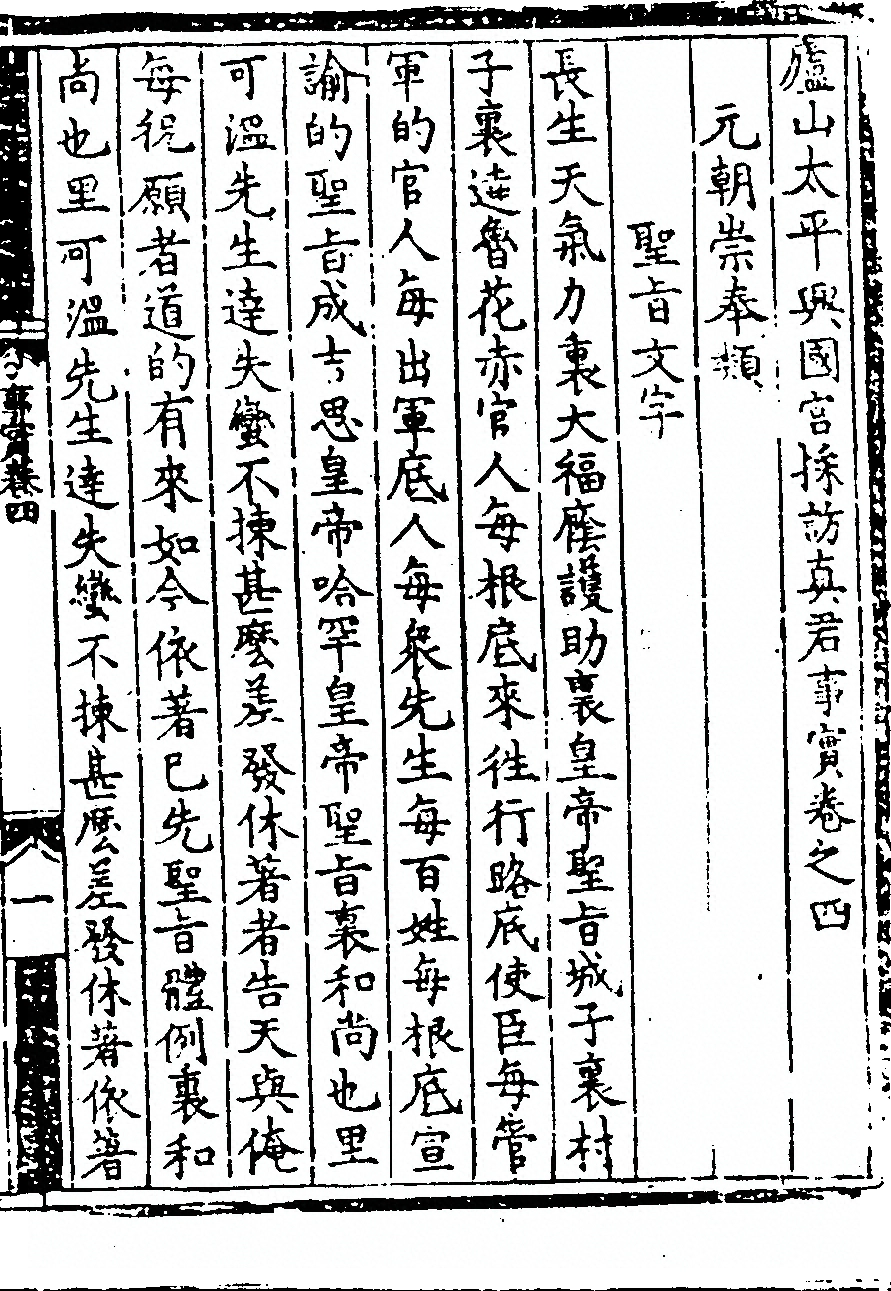 廬山太平興國宮採訪真君事實卷之四
元朝崇奉類
聖旨文字
長生天氣力裏大福廕護助裏皇帝聖旨城子裏村
子裏達魯花赤官人每根底來徃行路底使臣每管
軍的官人每出軍底人每衆先生每百姓每根底宣
諭的聖旨成吉思皇帝哈罕皇帝聖旨裏和尚也里
可溫先生達失蠻不揀甚麽差發休著者告天與俺
每祝願者道的有來如今依著已先聖旨體例裏和
尚也里可溫先生達失蠻不揀甚麽差發休著依著
卷四
一